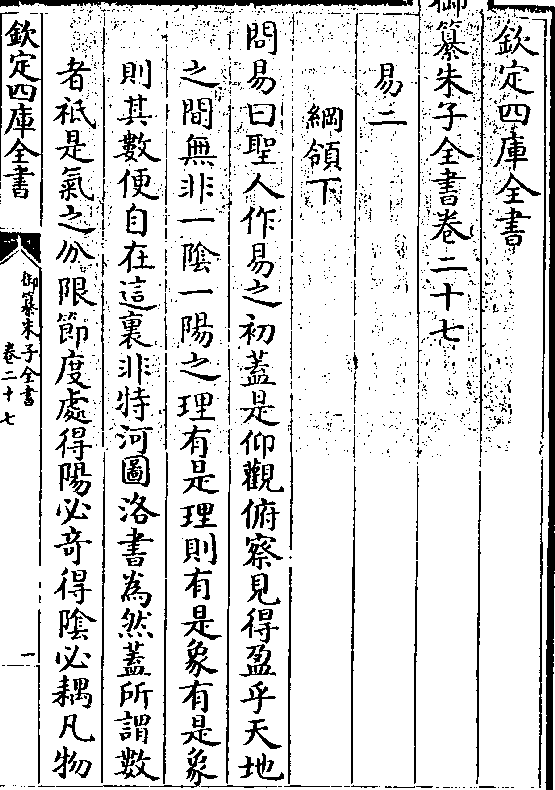 欽定四庫全書
御纂朱子全書卷二十七
易二
綱領下
問易曰聖人作易之初蓋是仰觀俯察見得盈乎天地
之間無非一陰一陽之理有是理則有是象有是象
則其數便自在這裏非特河圖洛書為然蓋所謂數
者祇是氣之分限節度處得陽必奇得陰必耦凡物
欽定四庫全書
御纂朱子全書
卷二十七
一